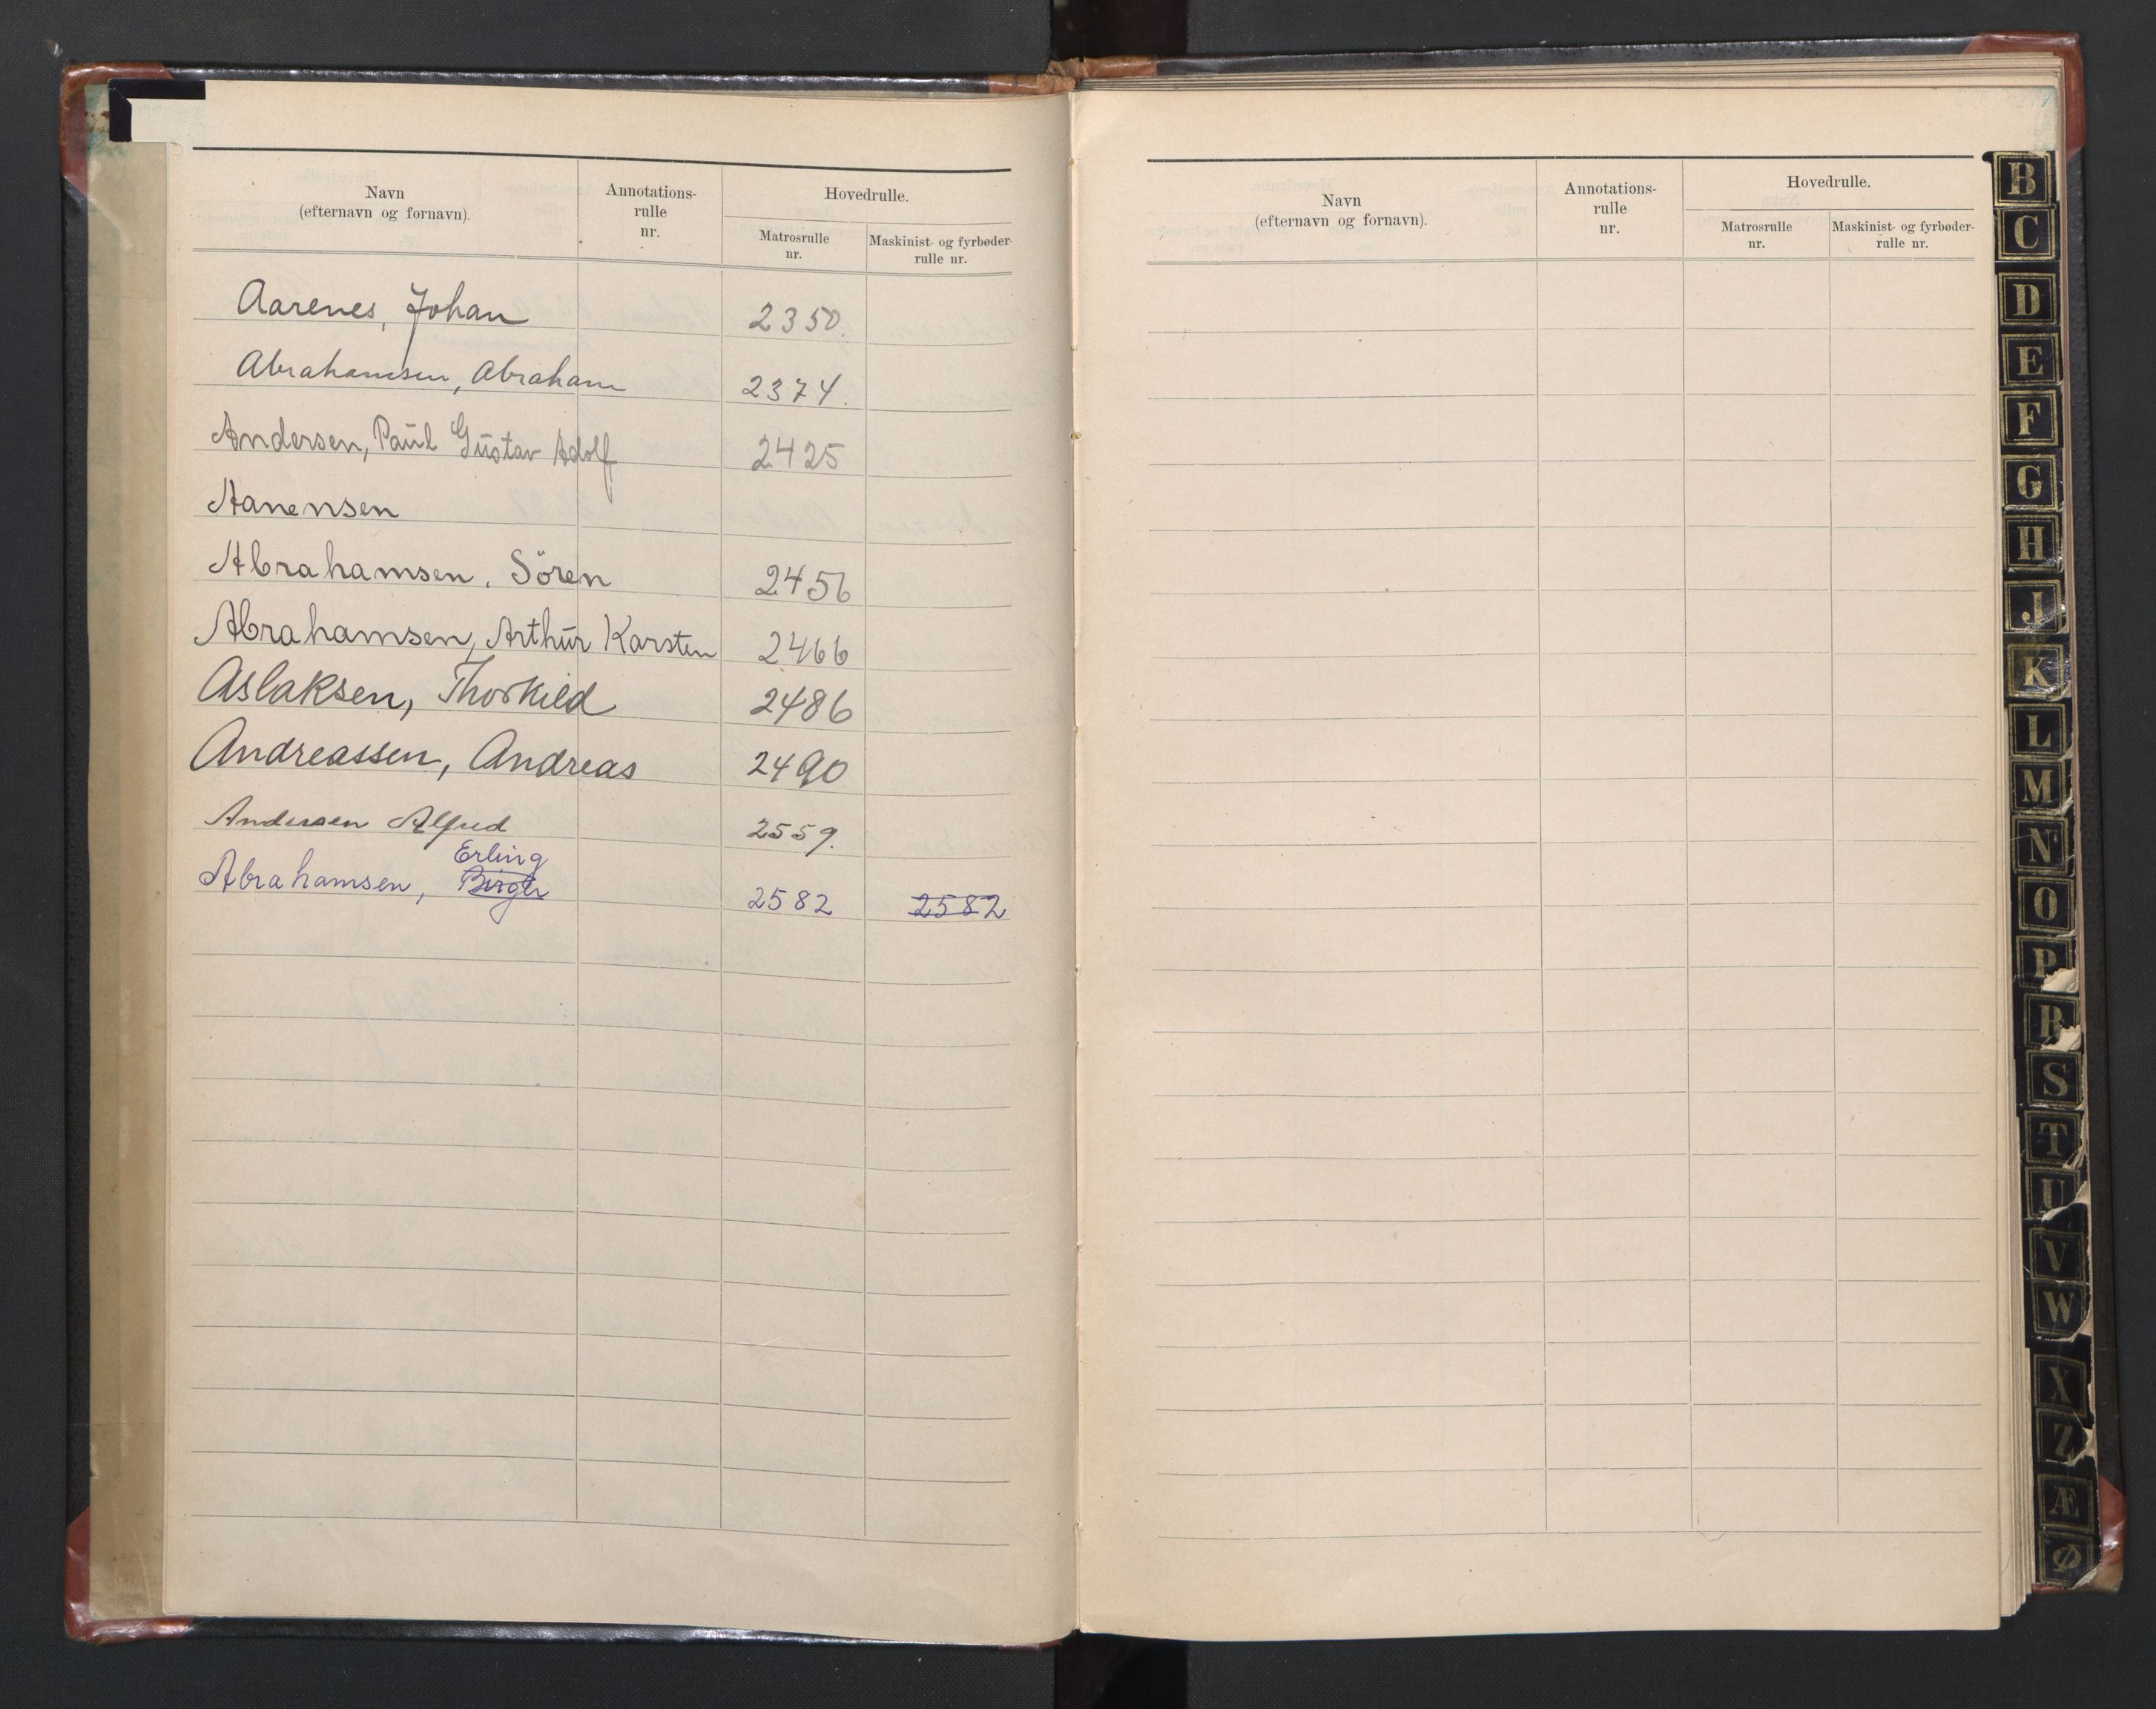 Navn
(efternavn og fornavn).
Annotations-
rulle
nr.
Hovedrulle.
Matrosrulle
nr.
Maskinist- og fyrbøder-
rulle nr.
Aarenes, Johan 2350.
Abrahamsen, Abraham 2374.
Andersen, Paul Gustav Adolf 2425
Aanensen
Abrahamsen, Sören 2456
Abrahamsen, Arthur Karsten 2466
Aslaksen, Thorkild 2486
Andreassen, Andreas 2490
Andersen Alfred 2559.
Erling
Abrahamsen, Birger 2582 2582
Navn
(efternavn og fornavn).
Annotations-
rulle
nr.
Hovedrulle.
Matrosrulle
nr.
Maskinist- og fyrbøder-
rulle nr.
B
C
D
E
F
G
H
J
K
L
M
N
O
P
R
S
T
U
V
W
X
Z
Æ
Ø